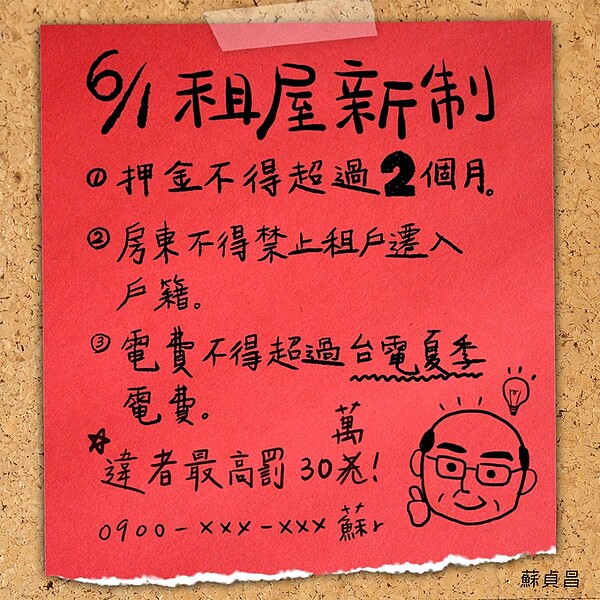 6/1 租屋新制
① 押金不得超過2個月。
② 房東不得禁止租戶遷入
戶籍。
③ 電費不得超過台電夏季
電費。
☆違者最高罰30萬!
0900-xxx-xxx 蘇r
蘇貞昌